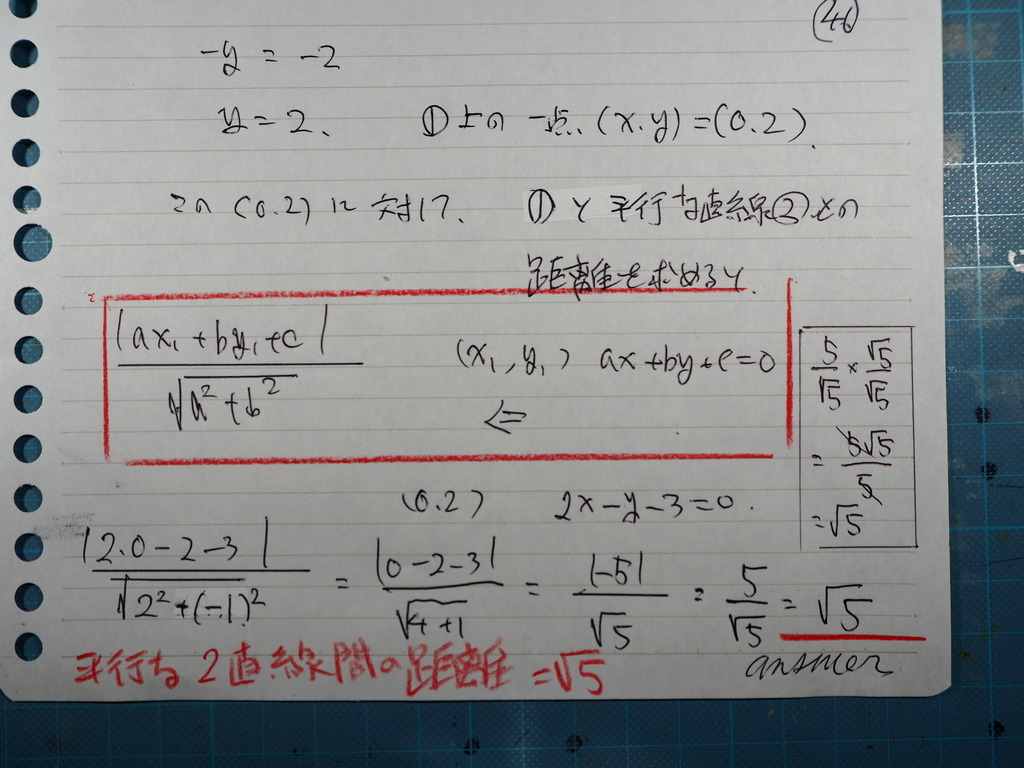 (46)
-y = -2
y = 2、 ①上の一点、(x.y)=(0.2).
この(0.2)に対して、 ①と平行な直線②との
距離を求めると、
|ax₁+by₁+c| / √(a²+b²) (x₁, y₁) ax+by+c=0
⇐
5/√5 × √5/√5
= 5√5/5
= √5
(0.2) 2x-y-3=0.
|2.0-2-3| / √(2²+(-1)²) = |0-2-3| / √(4+1) = |-5| / √5 = 5/√5 = √5
answer
平行な2直線間の距離 = √5